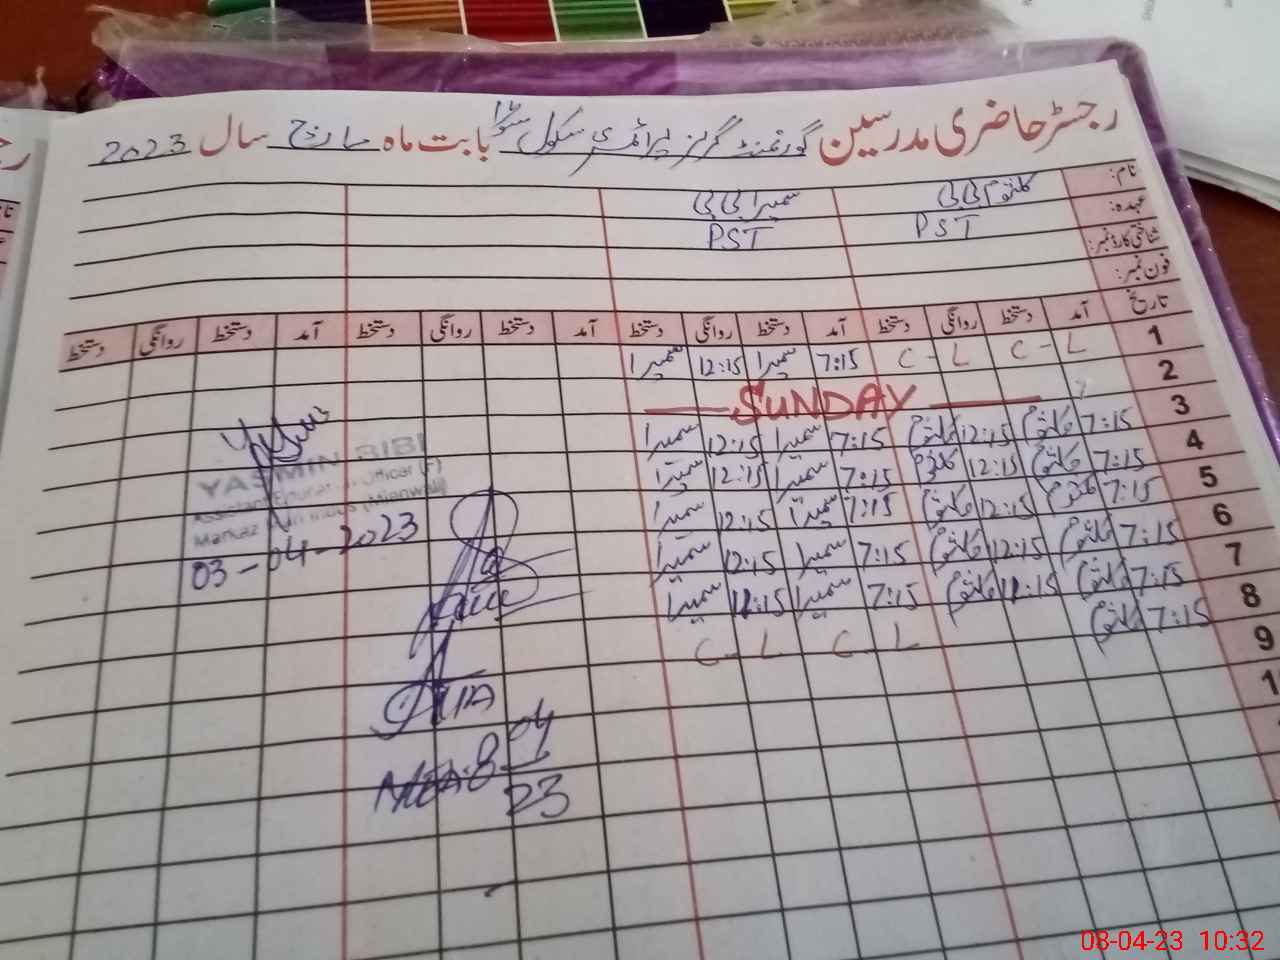 رجسٹر حاضری مدرسین گورنمنٹ گرلز پرائمری سکول بابت ماہ مارچ سال 2023
نام: کلثوم بی بی سمیرا بی بی
عہدہ: PST PST
شناختی کارڈ نمبر:
فون نمبر:
تاریخ آمد دستخط روانگی دستخط آمد دستخط روانگی دستخط آمد دستخط روانگی دستخط آمد دستخط روانگی دستخط
1 C-L C-L 7:15 سمیرا 12:15 سمیرا
2 SUNDAY
3 7:15 کلثوم 12:15 کلثوم 7:15 سمیرا 12:15 سمیرا
4 7:15 کلثوم 12:15 کلثوم 7:15 سمیرا 12:15 سمیرا
5 7:15 کلثوم 12:15 کلثوم 7:15 سمیرا 12:15 سمیرا
6 7:15 کلثوم 12:15 کلثوم 7:15 سمیرا 12:15 سمیرا
7 7:15 کلثوم 11:15 کلثوم 7:15 سمیرا 11:15 سمیرا
8 7:15 کلثوم C-L C-L
9
YASMIN BIBI
Assistant Education Officer (F)
03-04-2023
MEA
8-04
23
08-04-23 10:32